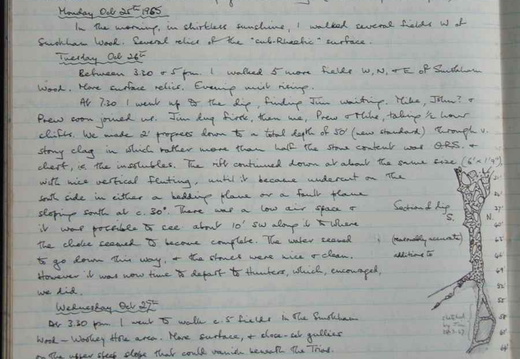 Monday Oct 25th 1985
In the morning, in shirtless sunshine, I walked several fields W of
Smokham Wood. Several relics of the "sub-Rhaetic" surface.
Tuesday Oct 26th
Between 3.30 & 5 pm I walked 5 more fields W, N, & E of Smokham
Wood. More surface relics. Evening mist rising.
At 7.30 I went up to the dig, finding Jim waiting. Mike, John? &
Prew soon joined us. Jim dug first, then me, Prew & Mike, taking ½ hour
shifts. We made 2' progress down to a total depth of 50' (new standard) through v.
stony clag in which rather more than half the stone content was ORS. &
chert, ie the insolubles. The rift continued down at about the same size (6' x 1'9")
with nice vertical fluting, until it became undercut on the
south side in either a bedding plane or a fault plane
sloping south at c. 30°. There was a low air space &
it was possible to see about 10' SW along it to where
the choke seemed to become complete. The water seemed
to go down this way, & the stones were nice & clean.
However it was now time to depart to Hunters, which, encouraged,
we did.
Section of dip
S. N.
(reasonably accurate)
additions to
Wednesday Oct 27th
At 2.30 pm I went to walk c. 5 fields in the Smokham
Wood - Wookey Hole area. More surface, & close-set gullies
on the upper steep slope that could vanish beneath the Trias.